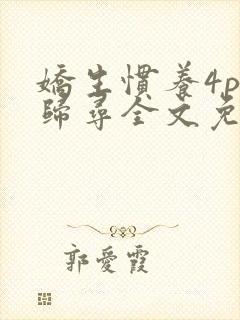 嬌生慣養4p
歸尋全文免
郭愛霞